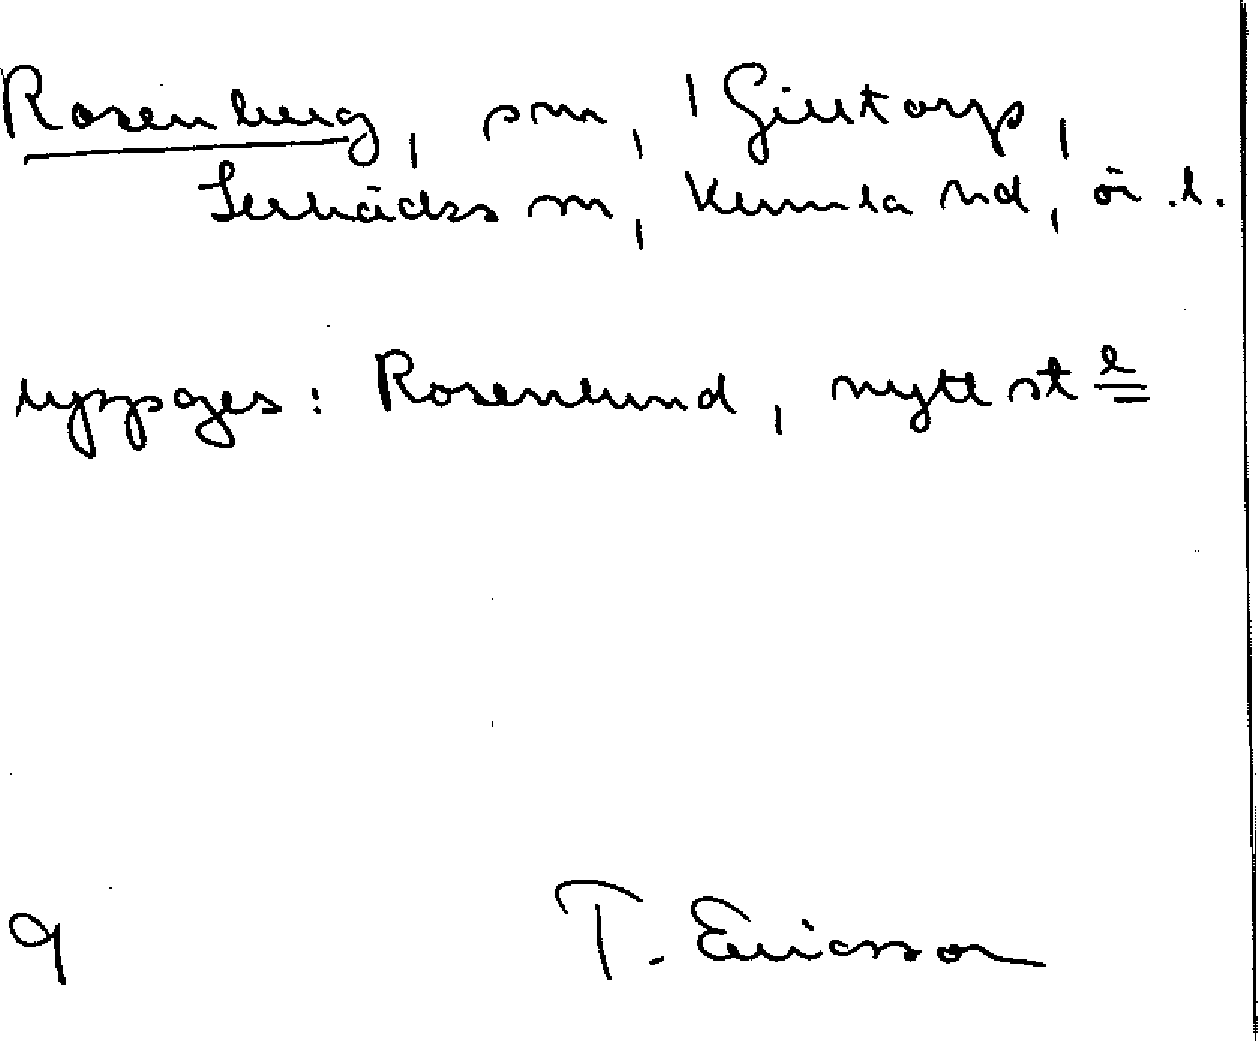 Rosenberg, sm, 1 Gilltorp,
Lerbäcks sn, Kumla hd, ör. l.
uppges: Rosenlund, nytt st l
9 T. Ericsson